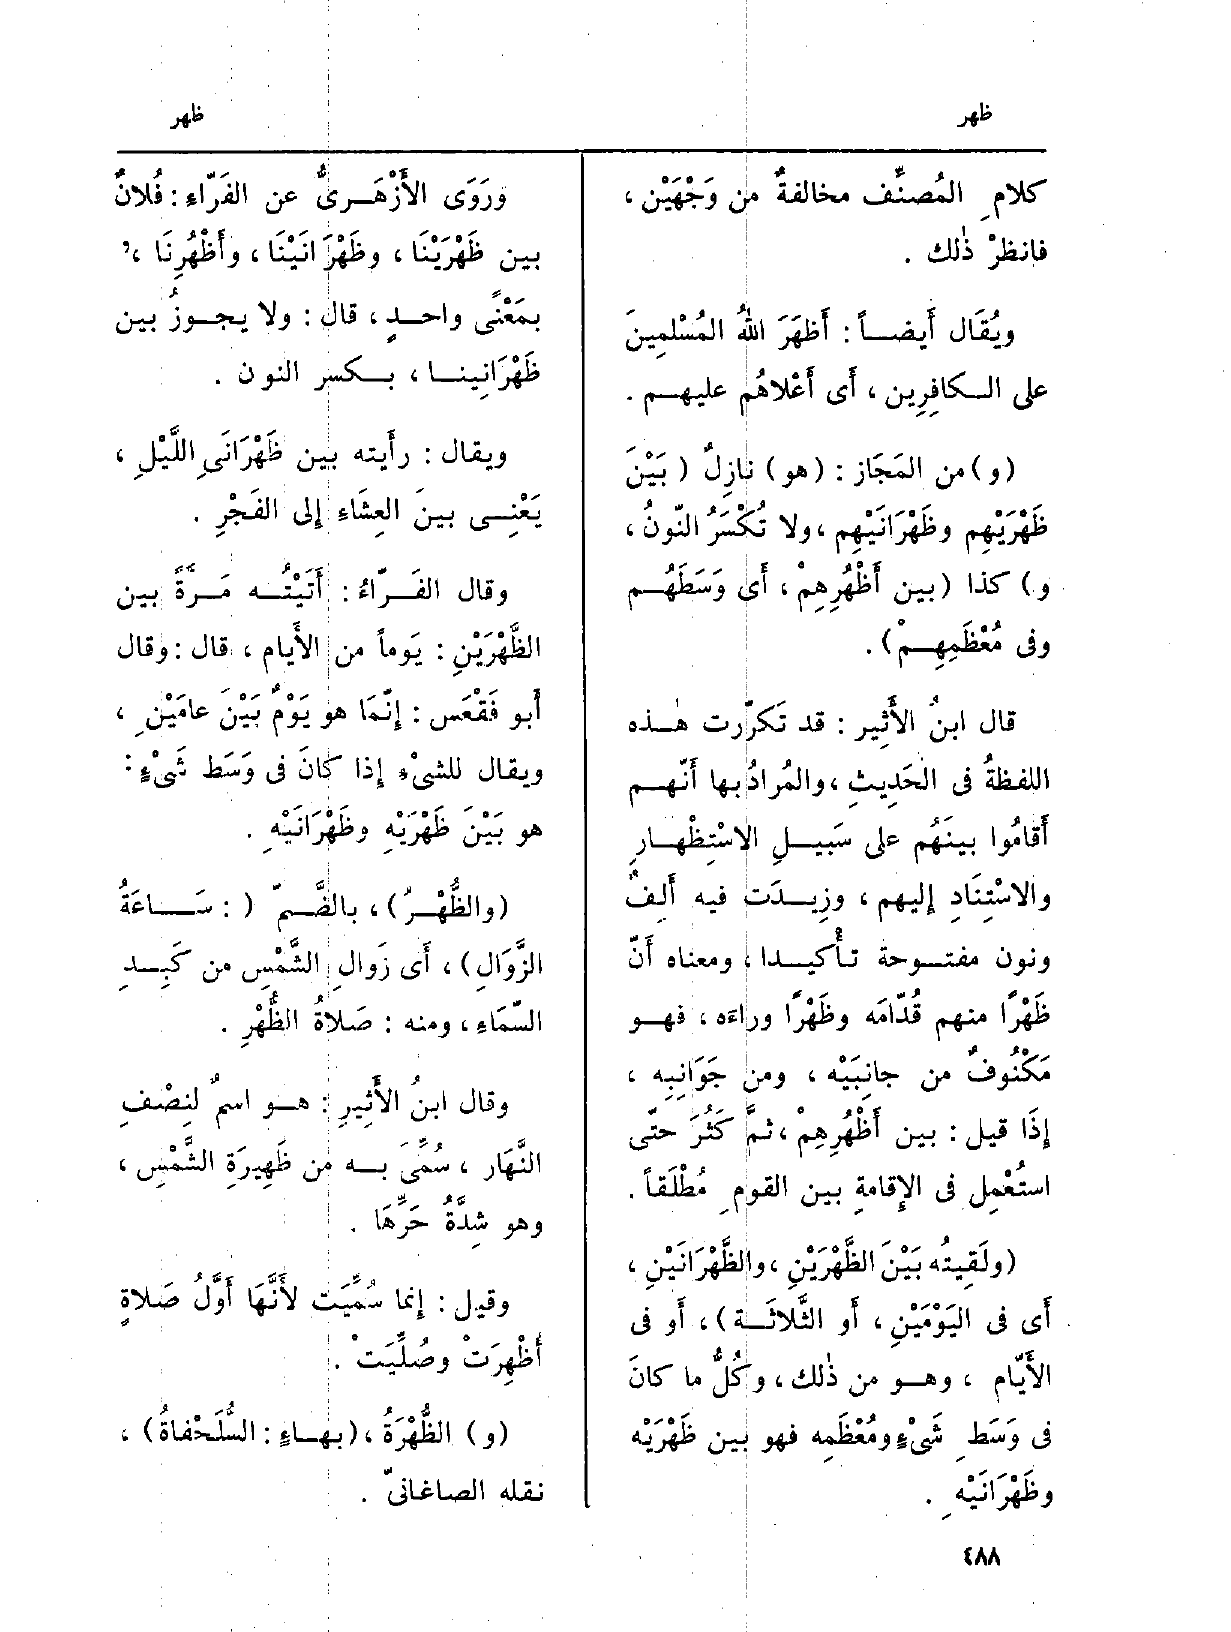 ظهر
ظهر
كلامِ المُصنِّف مخالفةٌ من وَجْهَيْن ،
فانظرْ ذٰلك .
ويُقَال أَيضـاً : أَظهَرَ اللهُ المُسْلِمِينَ
على الـكافِرِين ، أَى أَعْلاهُم عليهـم .
(و) من المَجَاز : (هو) نازِلٌ (بَيْنَ
ظَهْرَيْهِم وظَهْرَانَيْهِم ، ولا تُكْسَرُ النّونُ ،
و) كذا (بين أَظْهُرِهِمْ ، أَى وَسَطَهُـم
وفى مُعْظَمِهِـمْ) .
قال ابنُ الأَثِير : قد تَكرّرت هٰـذه
اللفظةُ فى الحَدِيثِ ، والمُرادُ بها أَنّهـم
أَقامُوا بينَهُم على سَبِيلِ الاسْتِظْهـارِ
والاسْتِنَادِ إليهم ، وزِيـدَت فيه أَلِفٌ
ونون مفتـوحة تـأْكيـدا ، ومعناه أَنّ
ظَهْرًا منهم قُدّامَه وظَهْرًا وراءَه ، فهـو
مَكْنُوفٌ من جانِبَيْه ، ومن جَوَانِبِه ،
إِذَا قيل : بين أَظْهُرِهِمْ ، ثمَّ كَثُرَ حتّى
استُعْمِل فى الإِقامةِ بين القومِ مُطْلَقاً .
(ولَقِيتُه بَيْنَ الظَّهْرَيْنِ ، والظَّهْرَانَيْنِ ،
أَى فى اليَوْمَيْنِ ، أَو الثَّلاثَـة) ، أَو فى
الأَيّام ، وهـو من ذٰلك ، وكُلُّ ما كانَ
فى وَسَطِ شَىْءٍ ومُعْظَمِه فهو بين ظَهْرَيْه
وظَهْرَانَيْهِ .
ورَوَى الأَزْهَـرىُّ عن الفَرّاءِ : فُلانٌ
بين ظَهْرَيْنَا ، وظَهْرَانَيْنَا ، وأَظْهُرِنَا ،
بمَعْنًى واحـدٍ ، قال : ولا يجـوزُ بين
ظَهْرَانِينـا ، بـكسر النون .
ويقال : رأَيته بين ظَهْرَانَىِ اللَّيْلِ ،
يَعْنِـى بينَ العِشَاءِ إِلى الفَجْرِ .
وقال الفَـرّاءُ : أَتَيْتُـه مَـرَّةً بين
الظَّهْرَيْنِ : يَوماً من الأَيام ، قال : وقال
أَبو فَقْعَس : إِنّمَا هو يَوْمٌ بَيْنَ عامَيْنِ ،
ويقال للشىْءِ إِذا كانَ فى وَسَط شَىْءٍ :
هو بَيْنَ ظَهْرَيْهِ وظَهْرَانَيْهِ .
(والظُّهْـرُ) ، بالضَّـمّ ( : سَـاعَةُ
الزَّوَالِ) ، أَى زَوالِ الشَّمْسِ من كَبِـدِ
السّمَاءِ ، ومنه : صَلاةُ الظُّهْرِ .
وقال ابنُ الأَثِيرِ : هـو اسمٌ لِنِصْفِ
النَّهَار ، سُمِّىَ بـه من ظَهِيرَةِ الشَّمْسِ ،
وهو شِدَّةُ حَرِّهَا .
وقيل : إِنما سُمِّيَت لأَنَّهَا أَوَّلُ صَلاةٍ
أُظْهِرَتْ وصُلِّيَتْ .
(و) الظُّهْرَةُ ، (بهـاءٍ : السُّلَحْفاةُ) ،
نقله الصاغانىّ .
٤٨٨